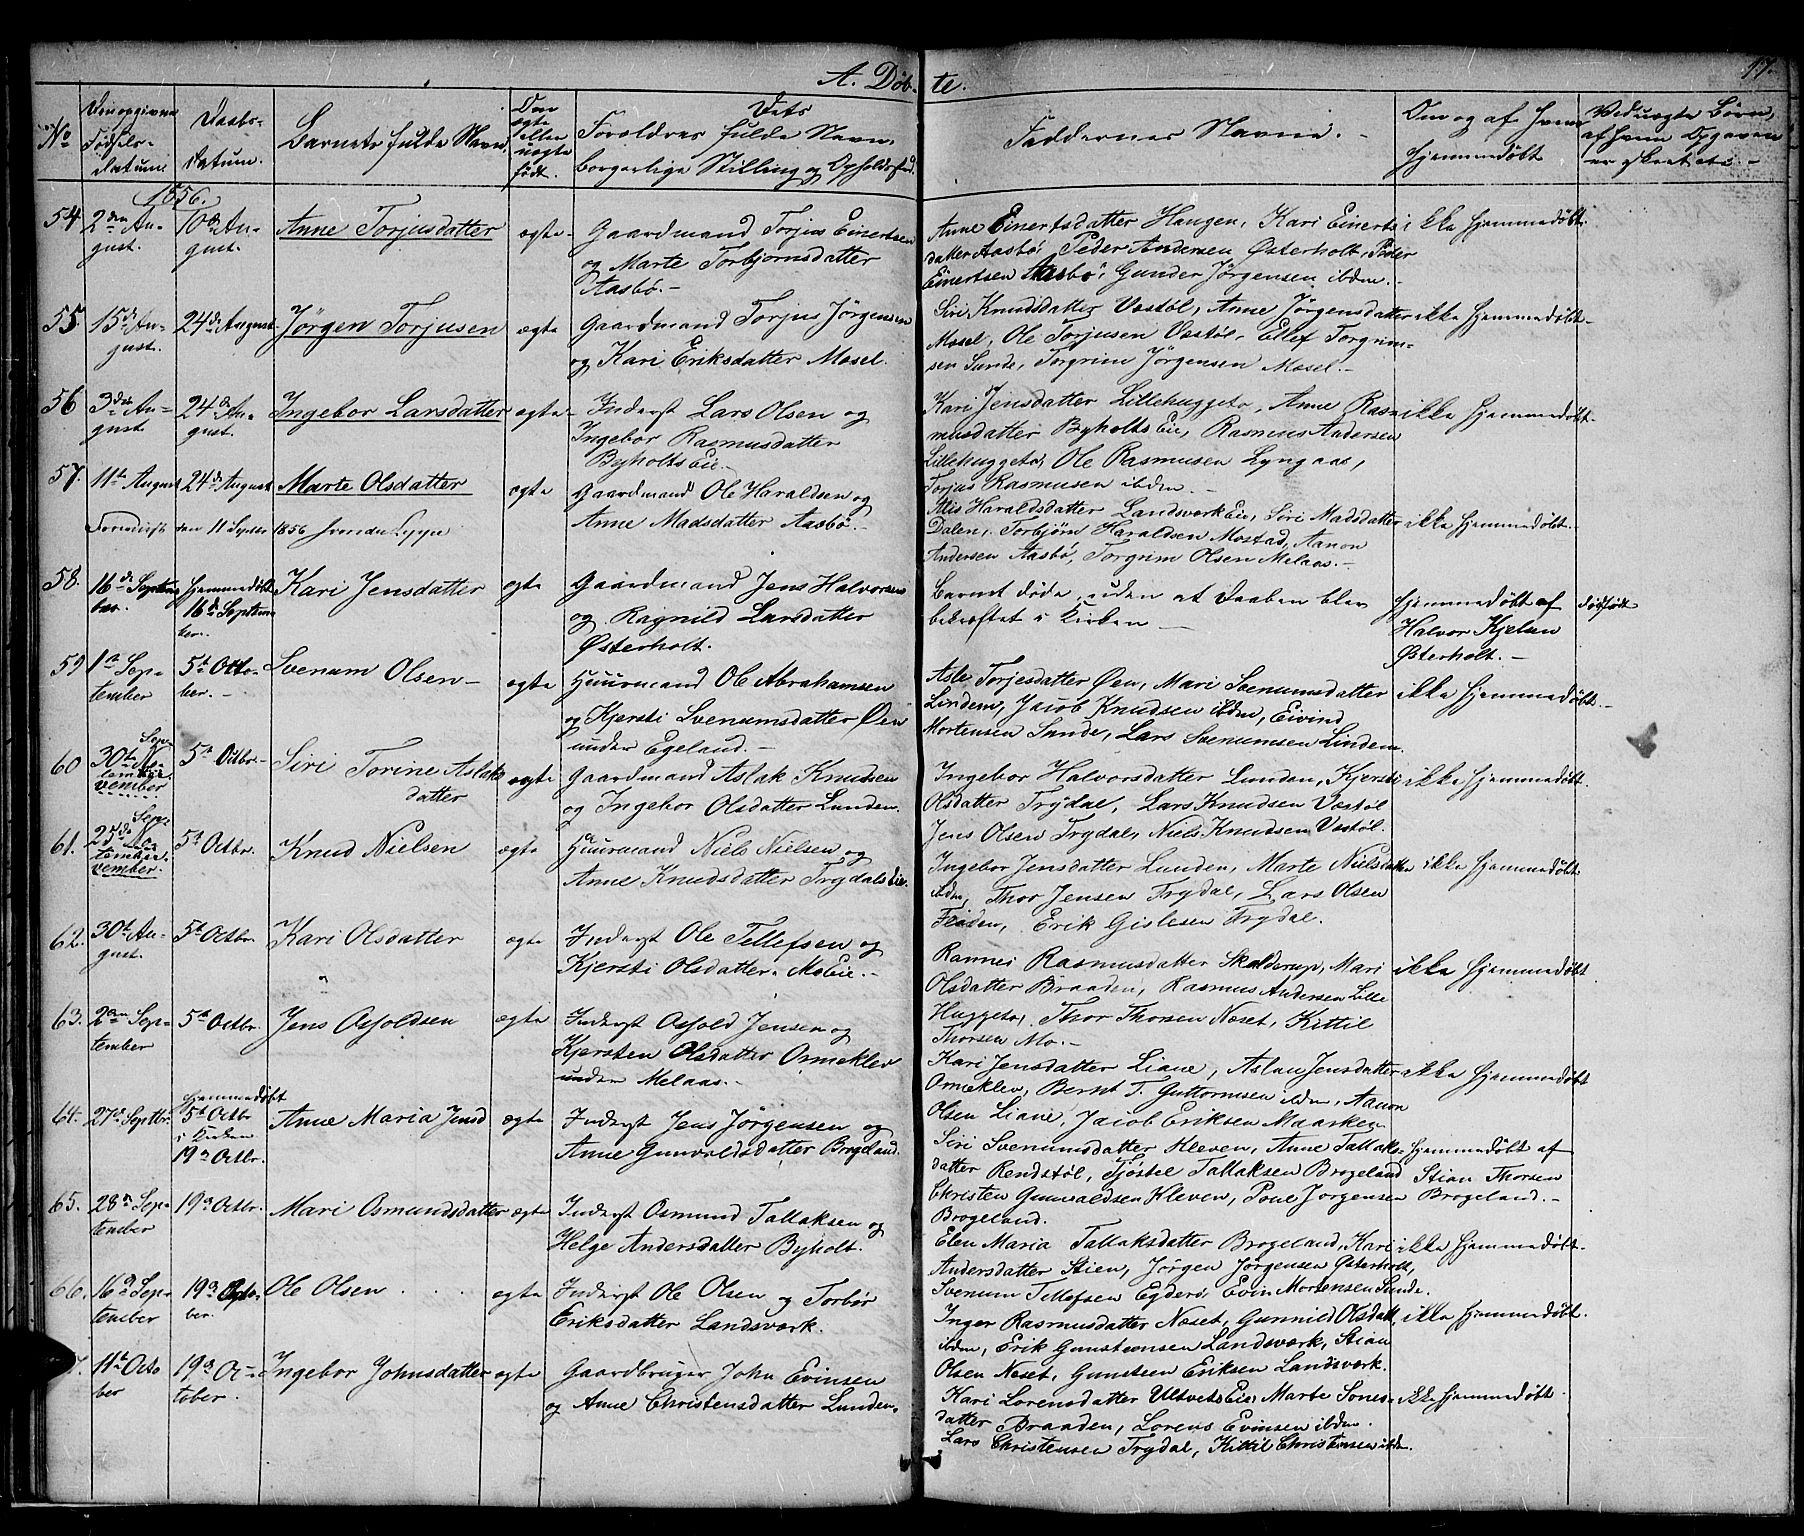 A. Døb-
te.
17.
No
Den opgivne Fødsels-Datum
Daabs-Datum.
Barnets fulde Navn
Om ægte eller uægte født.
Dets Forældres fulde Navn, borgerlige Stilling og Opholdssted.
Faddernes Navne.
Om og af hvem hjemmedøbt
Ved uægte Børn, af hvem Opgaven er skeet etc.
1856.
54. 2den August. 10de August. Anne Torjusdatter ægte
Gaardmand Torjus Einertsen
og Marte Torbjørnsdatter
Aasbø.
Anne Einertsdatter Haugen, Kari Einerts-
datter Aasbø, Peder Andersen Østerholt, Peder
Einertsen Aasbø, Gunder Jørgensen ibdm.
ikke hjemmedøbt.
55. 15de August. 24de August Jørgen Torjusen ægte
Gaardmand Torjus Jørgensen
og Kari Eriksdatter Mosel.
Siri Knudsdatter Væstøl, Anne Jørgensdatter
Mosel, Ole Torjusen Væstøl, Ellef Torgrim-
sen Sunde, Torgrim Jørgensen Mosel.
ikke hjemmedøbt.
56. 3die August 24de August. Ingebor Larsdatter ægte
Inderst Lars Olsen og
Ingebor Rasmusdatter
Byholts Eie.
Kari Jensdatter Lillehuggeto, Anne Ras-
musdatter Byholts Eie, Rasmus Andersen
Lillehuggeto, Ole Rasmusen Lyngaas,
Torjus Rasmusen ibdm.
ikke hjemmedøbt.
57. 11te August 24de August Marte Olsdatter ægte
Gaardmand Ole Haraldsen og
Anne Madsdatter Aasbø.
den 11 Septbr 1856
Alis Haraldsdatter Landsverk Eie, Siri Madsdatter
Dalen, Torbjørn Haraldsen Mostad, Aanon
Andersen Aasbø, Torgrim Olsen Melaas.
ikke hjemmedøbt.
58. 16de September hjemmedøbt 16de September. Kari Jensdatter ægte
Gaardmand Jens Halvorsen
og Ragnild Larsdatter
Østerholt.
Barnet døde, uden at Daaben blev
bekræftet i Kirken
hjemmedøbt af
Halvor Kjelsen
Østerholt.
dødfødt
59 1ste September 5te October. Svenum Olsen ægte
Huusmand Ole Abrahamsen
og Kjersti Svenumsdatter Øen
under Egeland.
Asle Torjesdatter Øen, Mari Svenumsdatter
Lindem, Jacob Knudsen ibdm, Eivind
Mortensen Sunde, Lars Svenumsen Lindem.
ikke hjemmedøbt.
60 30te Sep-tember vember 5te Octbr. Siri Torine Aslaks
datter ægte
Gaardmand Aslak Knudsen
og Ingebor Olsdatter Lunden.
Ingebor Halvorsdatter Lunden, Kjersti
Olsdatter Trydal, Lars Knudsen Væstøl
Jens Olsen Trydal, Niels Knudsen Væstøl.
ikke hjemmedøbt.
61. 25de Sep-tember vember. 5te Octbr. Knud Nielsen ægte
Huusmand Niels Nielsen og
Anne Knudsdatter Trydals Eie.
Ingebor Jensdatter Lunden, Marte Nielsdatter
ibdm, Thor Jensen Trydal, Lars Olsen
Frøden, Erik Gislesen Trydal.
ikke hjemmedøbt.
62. 30te August. 5te Octbr. Kari Olsdatter ægte
Inderst Ole Tellefsen og
Kjersti Olsdatter Mo Eie.
Rannei Rasmusdatter Skalderup, Mari
Olsdatter Braaden, Rasmus Andersen Lille
Huggeto, Thor Thorsen Næset, Kittil
Thorsen Mo.
ikke hjemmedøbt.
63. 2den September 5te Octbr. Jens Osfoldsen ægte
Inderst Osfold Jensen og
Kjersten Olsdatter Ormeklev
under Melaas.
Kari Jensdatter Liane, Aslau Jensdatter
Ormeklev, Bernt T. Guttormsen ibdm, Aanon
Olsen Liane, Jacob Eriksen Maarken
ikke hjemmedøbt
64. 27de Septbr. hjemmedøbt 5te Octbr i Kirken 19de Octbr. Anne Maria Jensd ægte
Inderst Jens Jørgensen og
Anne Gunvaldsdatter Brogeland.
Siri Svenumsdatter Kleven, Anne Tallaks-
datter Rendstøl, Tjøstel Tallaksen Brogeland
Christen Gunvaldsen Kleven, Povel Jørgensen
Brogeland.
hjemmedøbt af
Stian Thorsen
Brogeland.
65. 28de September 19de Octbr. Mari Osmundsdatter ægte
Inderst Osmund Tallaksen og
Helge Andersdatter Byholt.
Elen Maria Tallaksdatter Brogeland, Kari
Andersdatter Stien, Jørgen Jørgensen Østerholt,
Svenum Tellefsen Egderø, Evin Mortensen Sunde.
ikke hjemmedøbt.
66. 16de September 19de October. Ole Olsen ægte
Inderst Ole Olsen og Torbør
Eriksdatter Landsverk.
Inger Rasmusdatter Næset, Gunnild Olsdatt
ibdm, Erik Gunsteensen Landsverk, Stian
Olsen Næset, Gunsteen Eriksen Landsverk.
ikke hjemmedøbt.
7. 11te October 19de October. Ingebor Johnsdatter ægte
Gaardbruger John Evinsen
og Anne Christensdatter Lunden.
Kari Lorensdatter Ultvets Eie, Marte Tones-
datter Braaden, Lorens Evinsen ibdm.
Lars Christensen Trydal, Kittil Christensen ibdm.
ikke hjemmedøbt